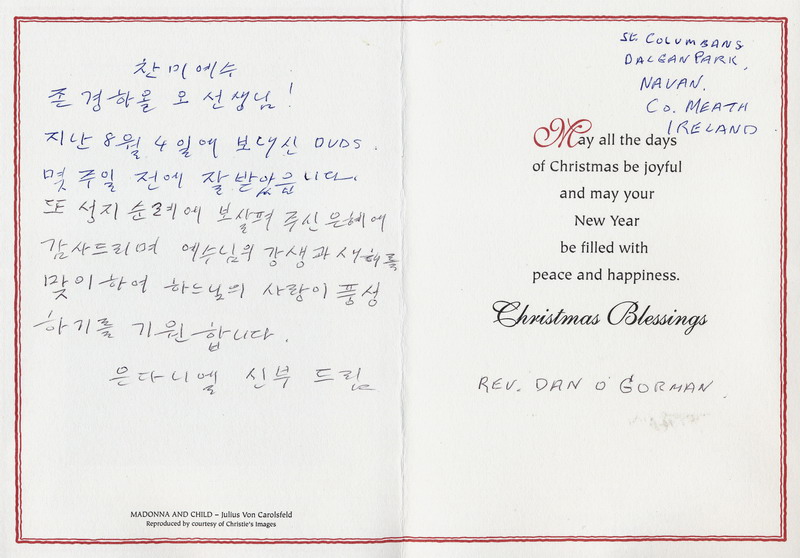 찬미예수
존경하올 오 선생님!
지난 8월 4일에 보내신 DVDS.
몇 주일 전에 잘 받았습니다.
또 성지순례에 보살펴 주신 은혜에
감사드리며 예수님의 강생과 새해를
맞이하여 하느님의 사랑이 풍성
하기를 기원합니다.
은다니엘 신부 드림
MADONNA AND CHILD – Julius Von Carolsfeld
Reproduced by courtesy of Christie's Images
St. COLUMBANS
DALGAN PARK,
NAVAN.
Co. MEATH
IRELAND
May all the days
of Christmas be joyful
and may your
New Year
be filled with
peace and happiness.
Christmas Blessings
REV. DAN O'GORMAN.